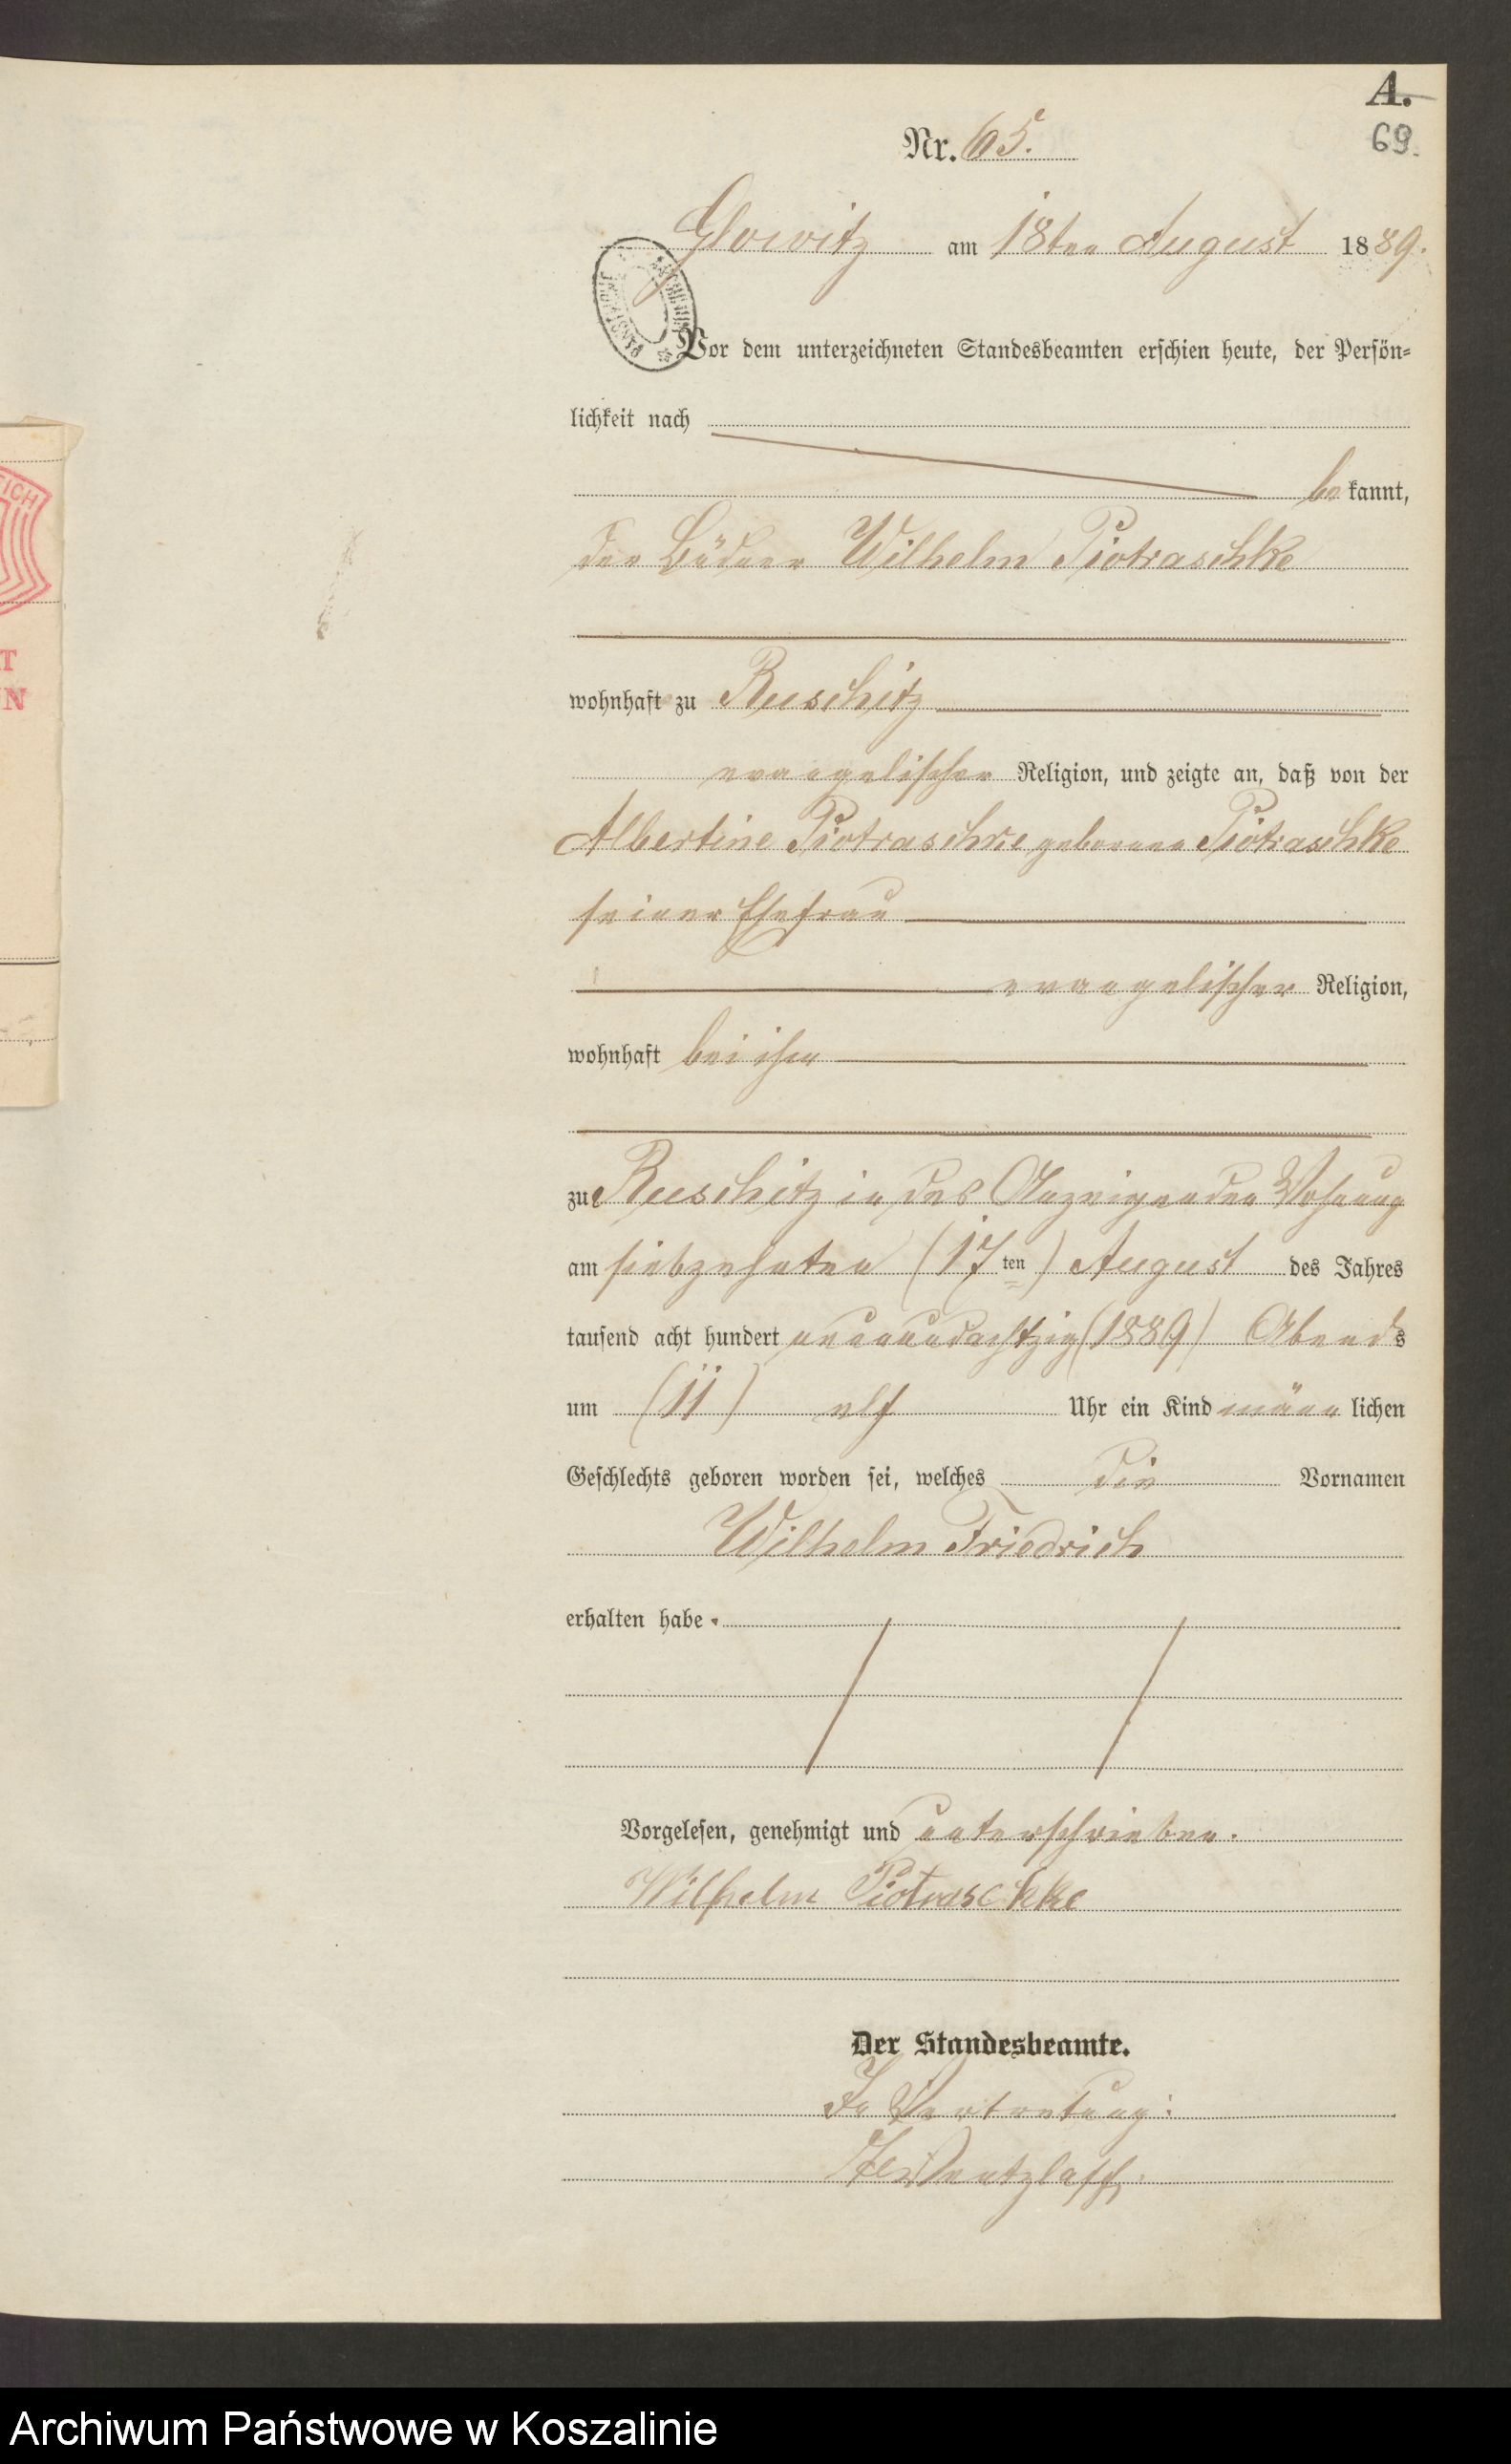 A.
69.
Nr. 65.
Glowitz am 18ten August 1889.
Vor dem unterzeichneten Standesbeamten erschien heute, der Persön-
lichkeit nach
be kannt,
der Büdner Wilhelm Piotraschke
wohnhaft zu Ruschitz
evangelischer Religion, und zeigte an, daß von der
Albertine Piotraschke geborene Piotraschke
seiner Ehefrau
evangelischer Religion,
wohnhaft bei ihm
zu Ruschitz in des Anzeigenden Wohnung
am siebzehnten (17ten) August des Jahres
tausend acht hundert neunundachtzig (1889) Abends
um (11) elf Uhr ein Kind männlichen
Geschlechts geboren worden sei, welches die Vornamen
Wilhelm Friedrich
erhalten habe.
Vorgelesen, genehmigt und unterschrieben.
Wilhelm Piotraschke
Der Standesbeamte.
In Vertretung:
Archiwum Państwowe w Koszalinie